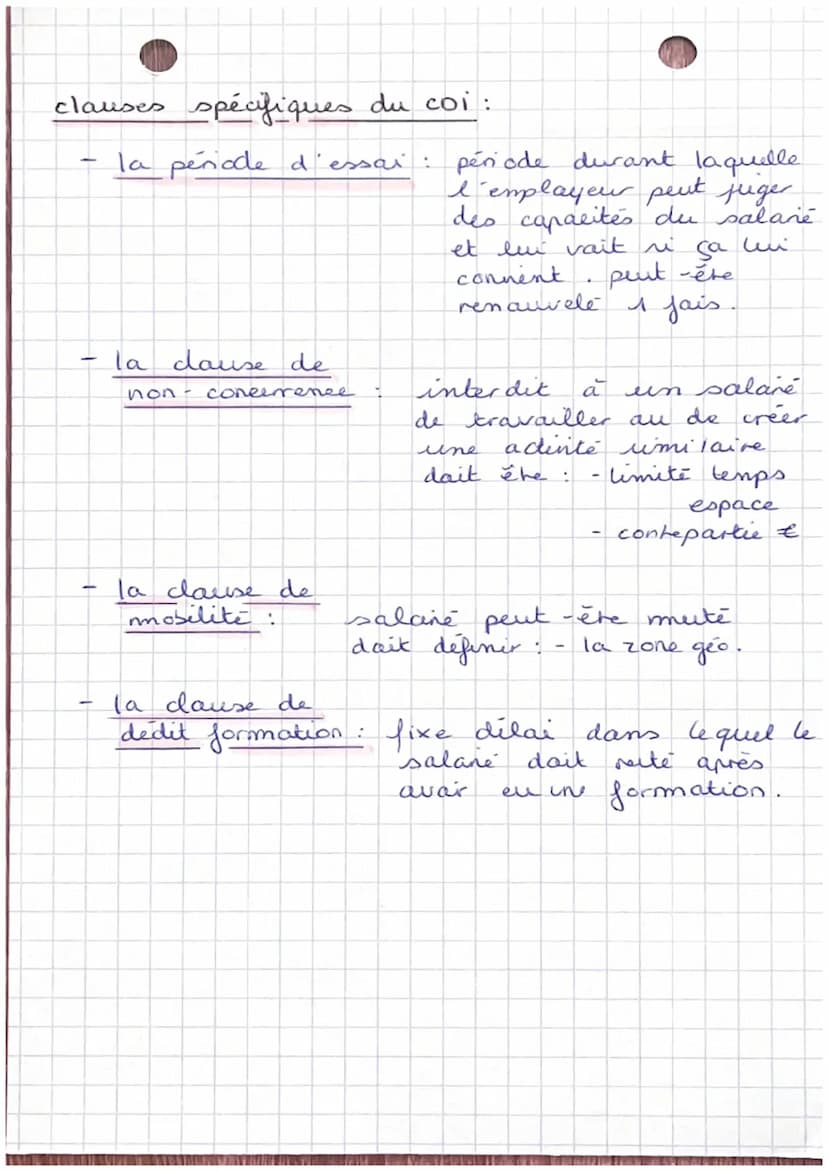 clauses spécifiques du CDI :
- la période d'essai : période durant laquelle
l'employeur peut juger
des capacités du salarié
et lui voit si ça lui
convient. peut-être
renouvelé 1 fois.
- la clause de
non-concurrence : interdit à un salarié
de travailler ou de créer
une activité similaire
doit être : - limité temps
espace
- contrepartie €
- la clause de
mobilité : salarié peut-être muté
doit définir : - la zone géo.
- la clause de
dédit formation : fixe délai dans lequel le
salarié doit resté après
avoir eu une formation.